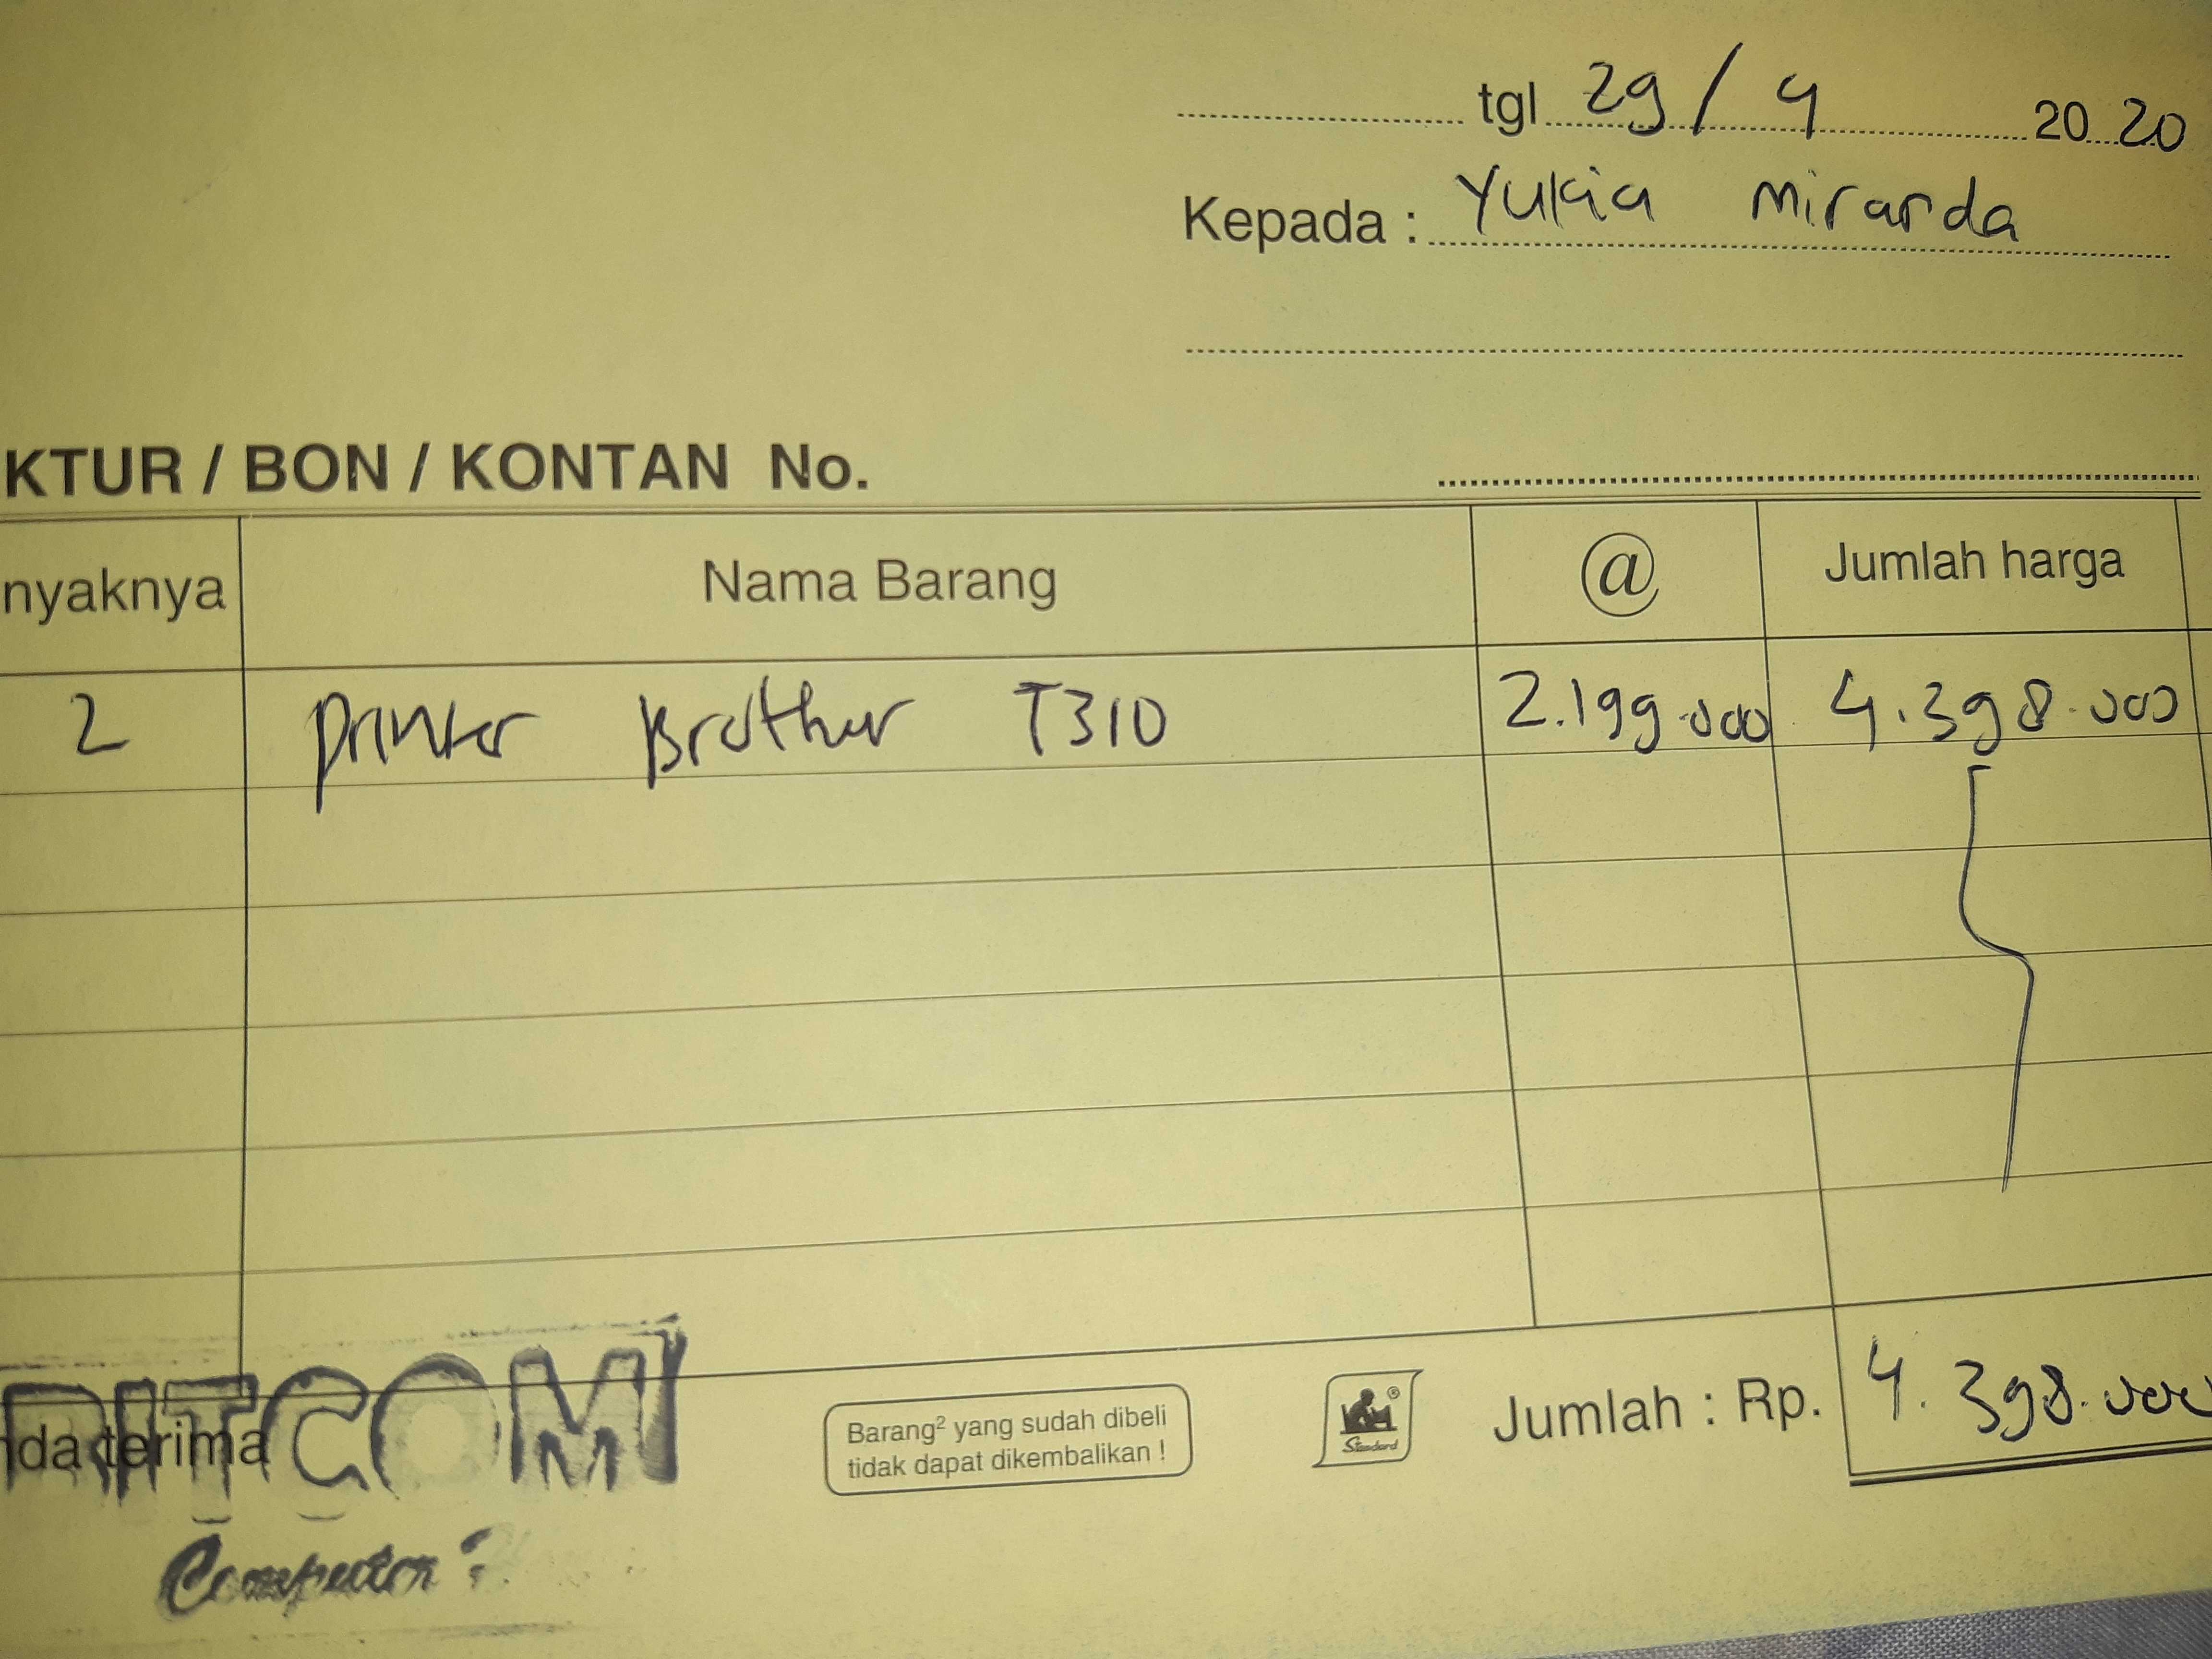 tgl 29 / 4 2020
Kepada : Yukia Miranda
KTUR / BON / KONTAN No.
nyaknya Nama Barang @ Jumlah harga
2 Printer Brother T310 2.199.000 4.398.000
RITCOM
nda terima
Computer
Barang² yang sudah dibeli
tidak dapat dikembalikan !
Standard
Jumlah : Rp. 4.398.000